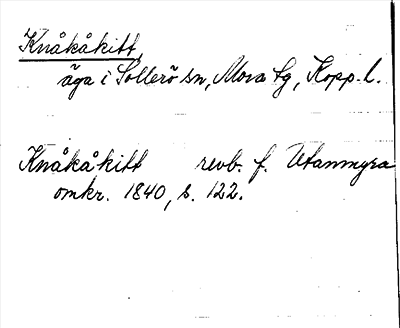 Knåkåkitt,
äga i Sollerö sn, Mora tg, Kopp. l.
Knåkåkitt revb. f. Utanmyra
omkr. 1840, s. 122.